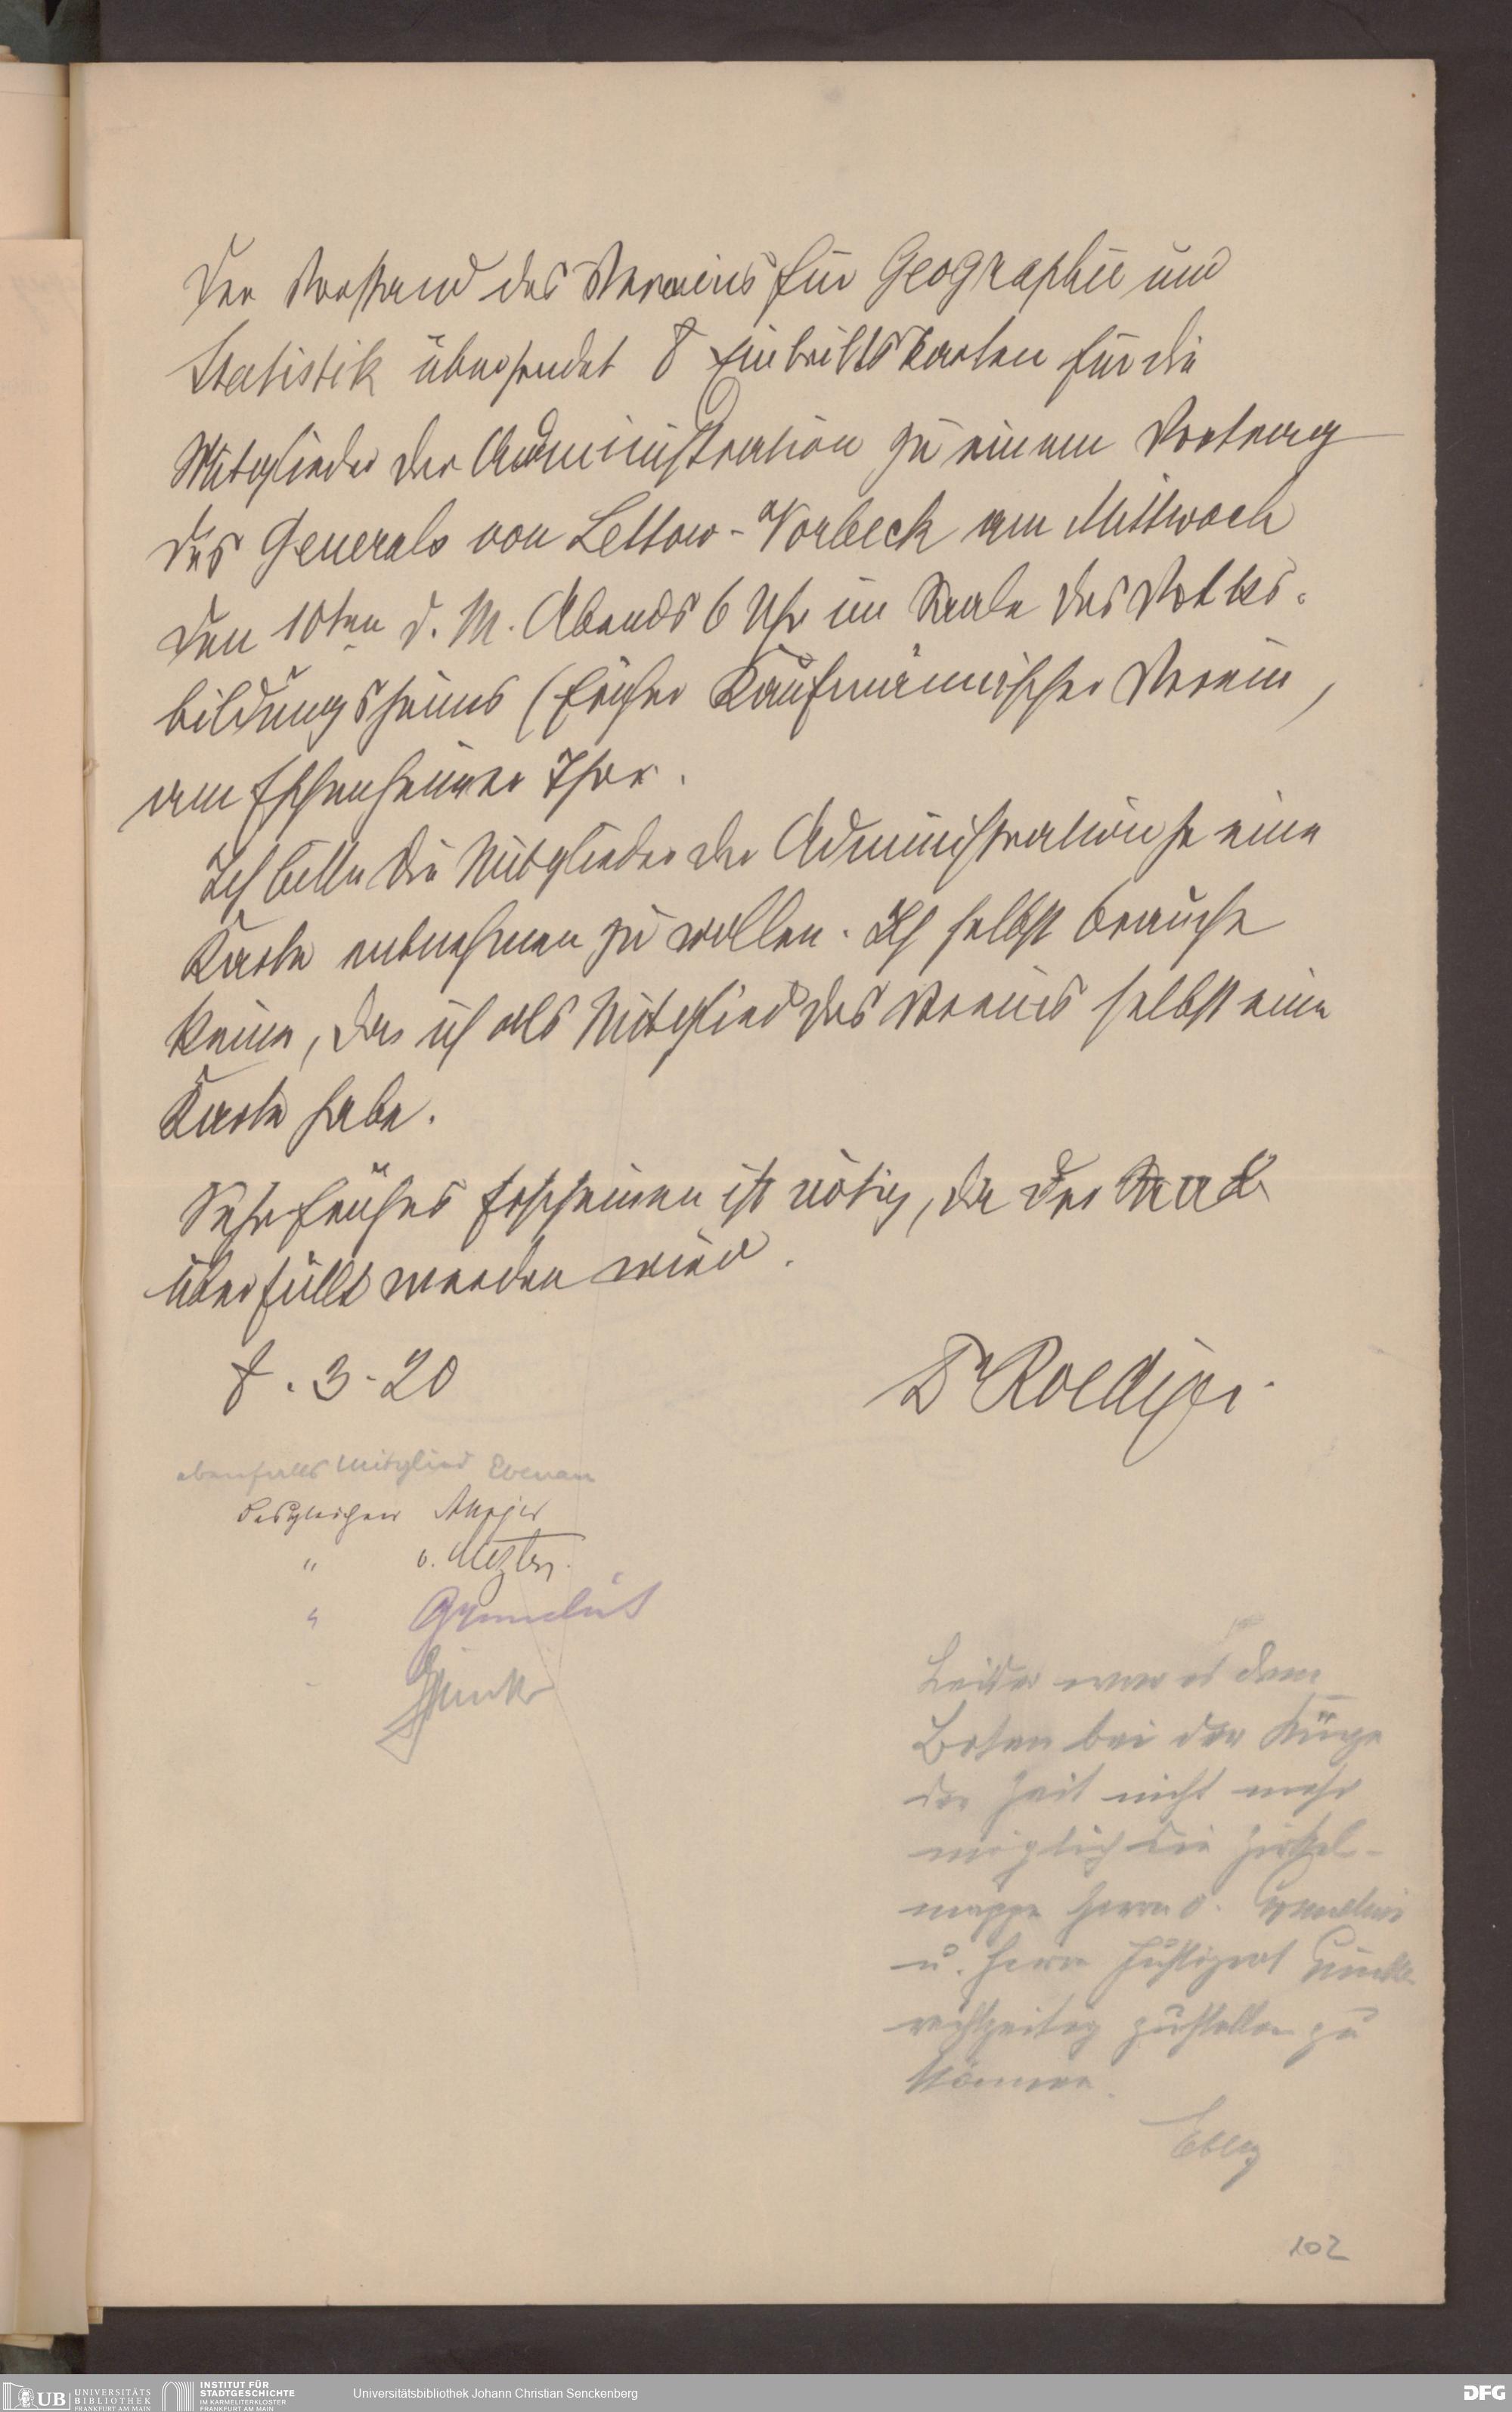 Der Vorstand des Vereins für Geographie und
Statistik übersendet 8 Eintrittskarten für die
Mitglieder der Administration zu einem Vortrag
des Generals von Lettow-Vorbeck am Mittwoch
den 10ten d. M. Abends 6 Uhr im Saale des Volks-
bildungsheims (früher Kaufmännischer Verein,
am Eschenheimer Thor.
Ich bitte die Mitglieder der Administration je eine
Karte entnehmen zu wollen. Ich selbst brauche
keine, da ich als Mitglied des Vereins selbst eine
Karte habe.
Sehr frühes Erscheinen ist nötig, da der Saal
überfüllt werden wird.
8.3.20
Dr Roediger
ebenfalls Mitglied Ebenau
desgleichen
" v. Metzler
"
Leider war es dem
Boten bei der Kürze
der Zeit nicht mehr
möglich die Zirkel-
mappe Herrn v.
u. Herrn Justizrat
rechtzeitig zustellen zu
können.
102
UB UNIVERSITÄTS
BIBLIOTHEK
FRANKFURT AM MAIN
INSTITUT FÜR
STADTGESCHICHTE
IM KARMELITERKLOSTER
FRANKFURT AM MAIN
Universitätsbibliothek Johann Christian Senckenberg
DFG